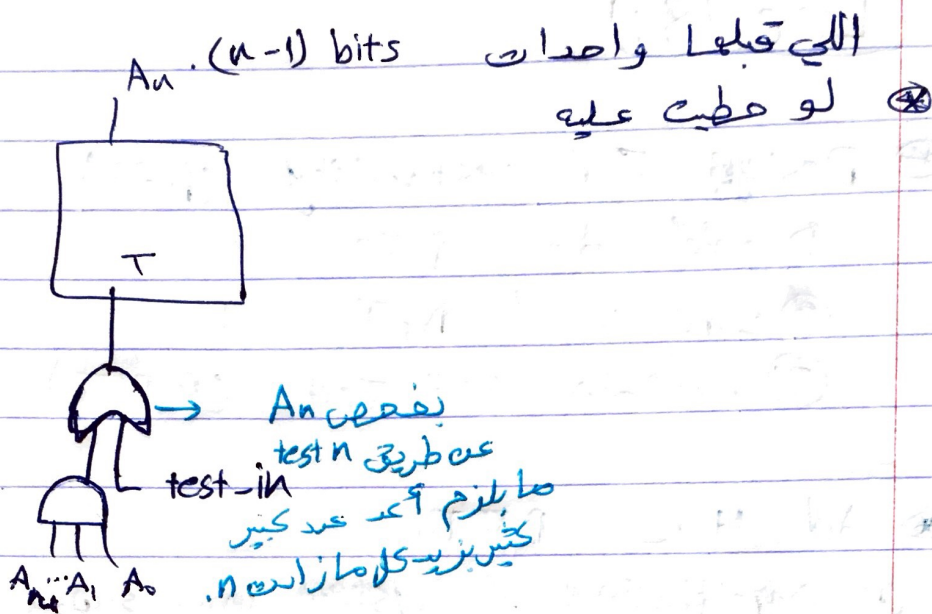 اللي قبلها واحدات (n-1) bits
An
⊛ لو حطيت عليه
T
→ بفحص An
عن طريق test n
test-in
ما بلزم أعد عدد كبير
كثير بزيد كل ما زادت n.
An-1 ... A1 A0